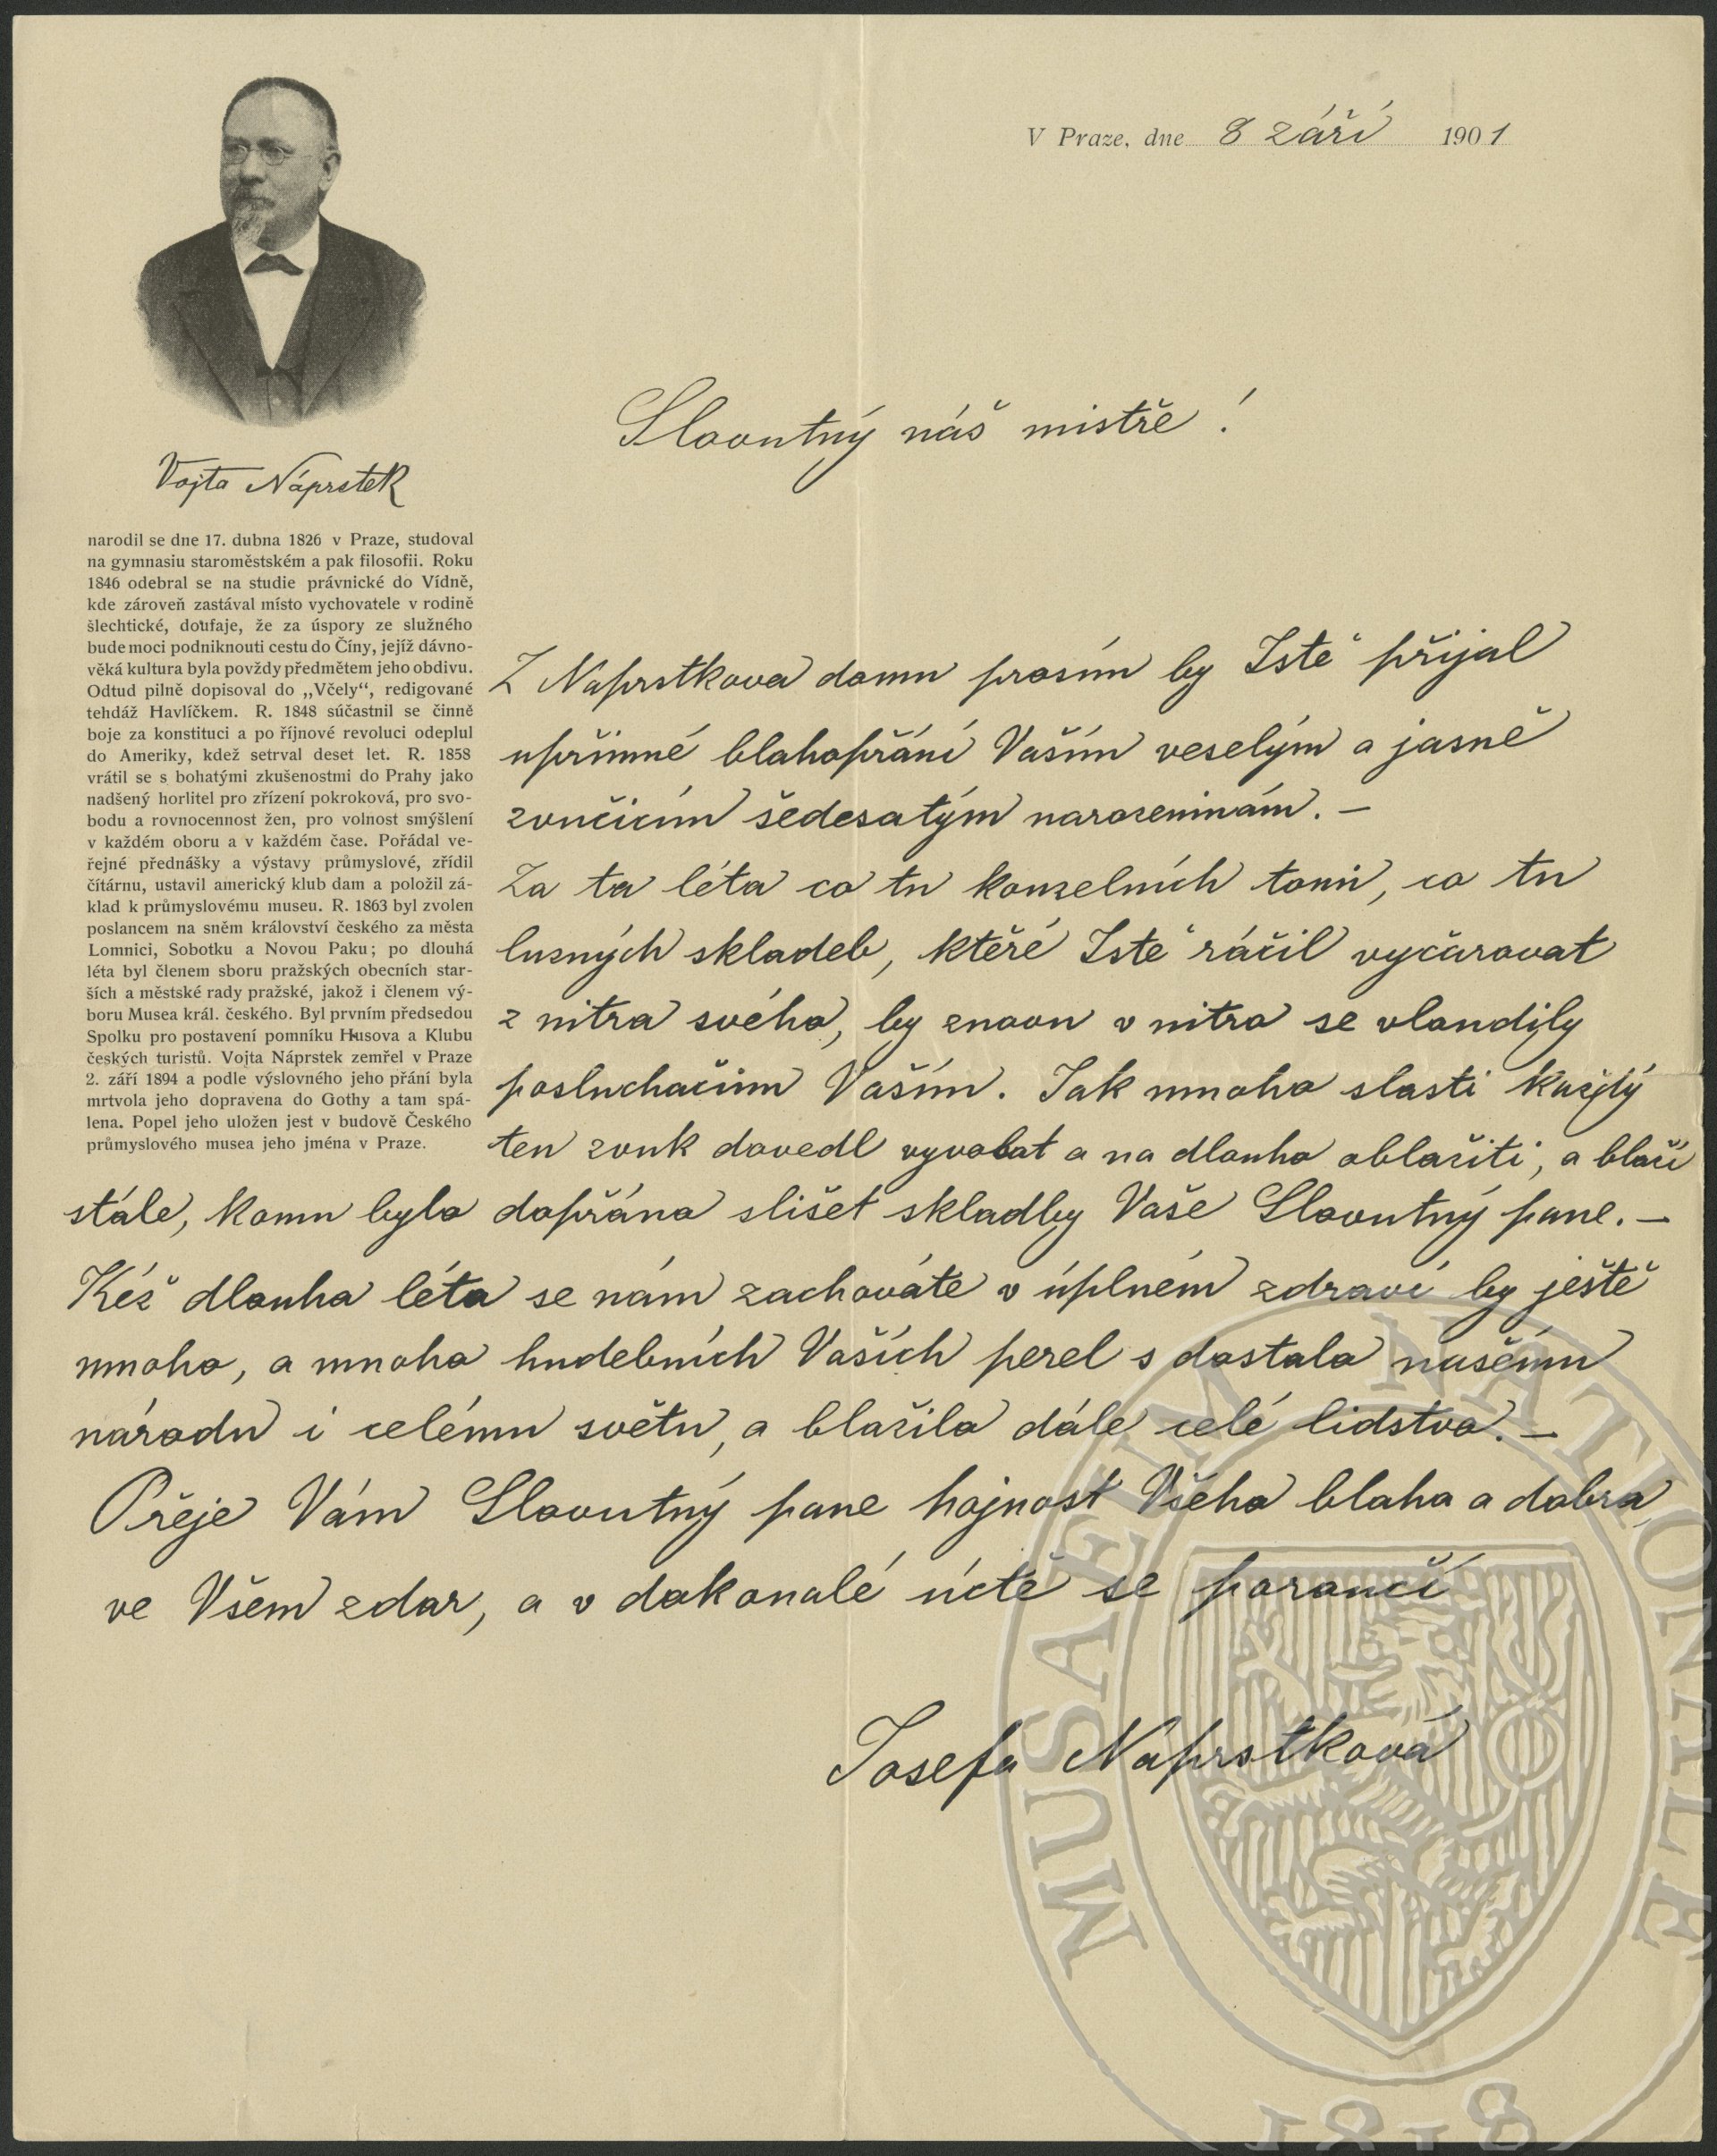 V Praze, dne 8 září 1901
Vojta Náprstek
narodil se dne 17. dubna 1826 v Praze, studoval
na gymnasiu staroměstském a pak filosofii. Roku
1846 odebral se na studie právnické do Vídně,
kde zároveň zastával místo vychovatele v rodině
šlechtické, doufaje, že za úspory ze služného
bude moci podniknouti cestu do Číny, jejíž dávno-
věká kultura byla povždy předmětem jeho obdivu.
Odtud pilně dopisoval do „Včely“, redigované
tehdáž Havlíčkem. R. 1848 súčastnil se činně
boje za konstituci a po říjnové revoluci odeplul
do Ameriky, kdež setrval deset let. R. 1858
vrátil se s bohatými zkušenostmi do Prahy jako
nadšený horlitel pro zřízení pokroková, pro svo-
bodu a rovnocennost žen, pro volnost smýšlení
v každém oboru a v každém čase. Pořádal ve-
řejné přednášky a výstavy průmyslové, zřídil
čítárnu, ustavil americký klub dam a položil zá-
klad k průmyslovému museu. R. 1863 byl zvolen
poslancem na sněm království českého za města
Lomnici, Sobotku a Novou Paku; po dlouhá
léta byl členem sboru pražských obecních star-
ších a městské rady pražské, jakož i členem vý-
boru Musea král. českého. Byl prvním předsedou
Spolku pro postavení pomníku Husova a Klubu
českých turistů. Vojta Náprstek zemřel v Praze
2. září 1894 a podle výslovného jeho přání byla
mrtvola jeho dopravena do Gothy a tam spá-
lena. Popel jeho uložen jest v budově Českého
průmyslového musea jeho jména v Praze.
Slovutný náš mistře!
Z Naprstkova domu prosím by Jstě přijal
upřimné blahopřání Vaším veselým a jasně
zvučicím šedesatým narozeninám. —
Za ta léta co tu kouzelních tonů, co tu
luzných skladeb, ktěré Jstě ráčil vyčarovat
z nitra svého, by znovu v nitro se vloudily
posluchačům Vaším. Jak mnoho slasti každý
ten zvuk dovedl vyvolat a na dlouho oblažiti, a blaží
stále, komu bylo dopřáno slišet skladby Vaše Slovutný pane. —
Kéž dlouha léta se nám zachováte v úplném zdraví by ještě
mnoho, a mnoho hudebních Vašich perel s dostalo našému
národu i celému světu, a blažilo dále celé lidstvo. —
Přeje Vám Slovutný pane hojnost Všeho blaha a dobra,
ve Všem zdar, a v dokonalé úctě se poroučí
Josefa Náprstková
MUSAEUM NATIONALE
1818